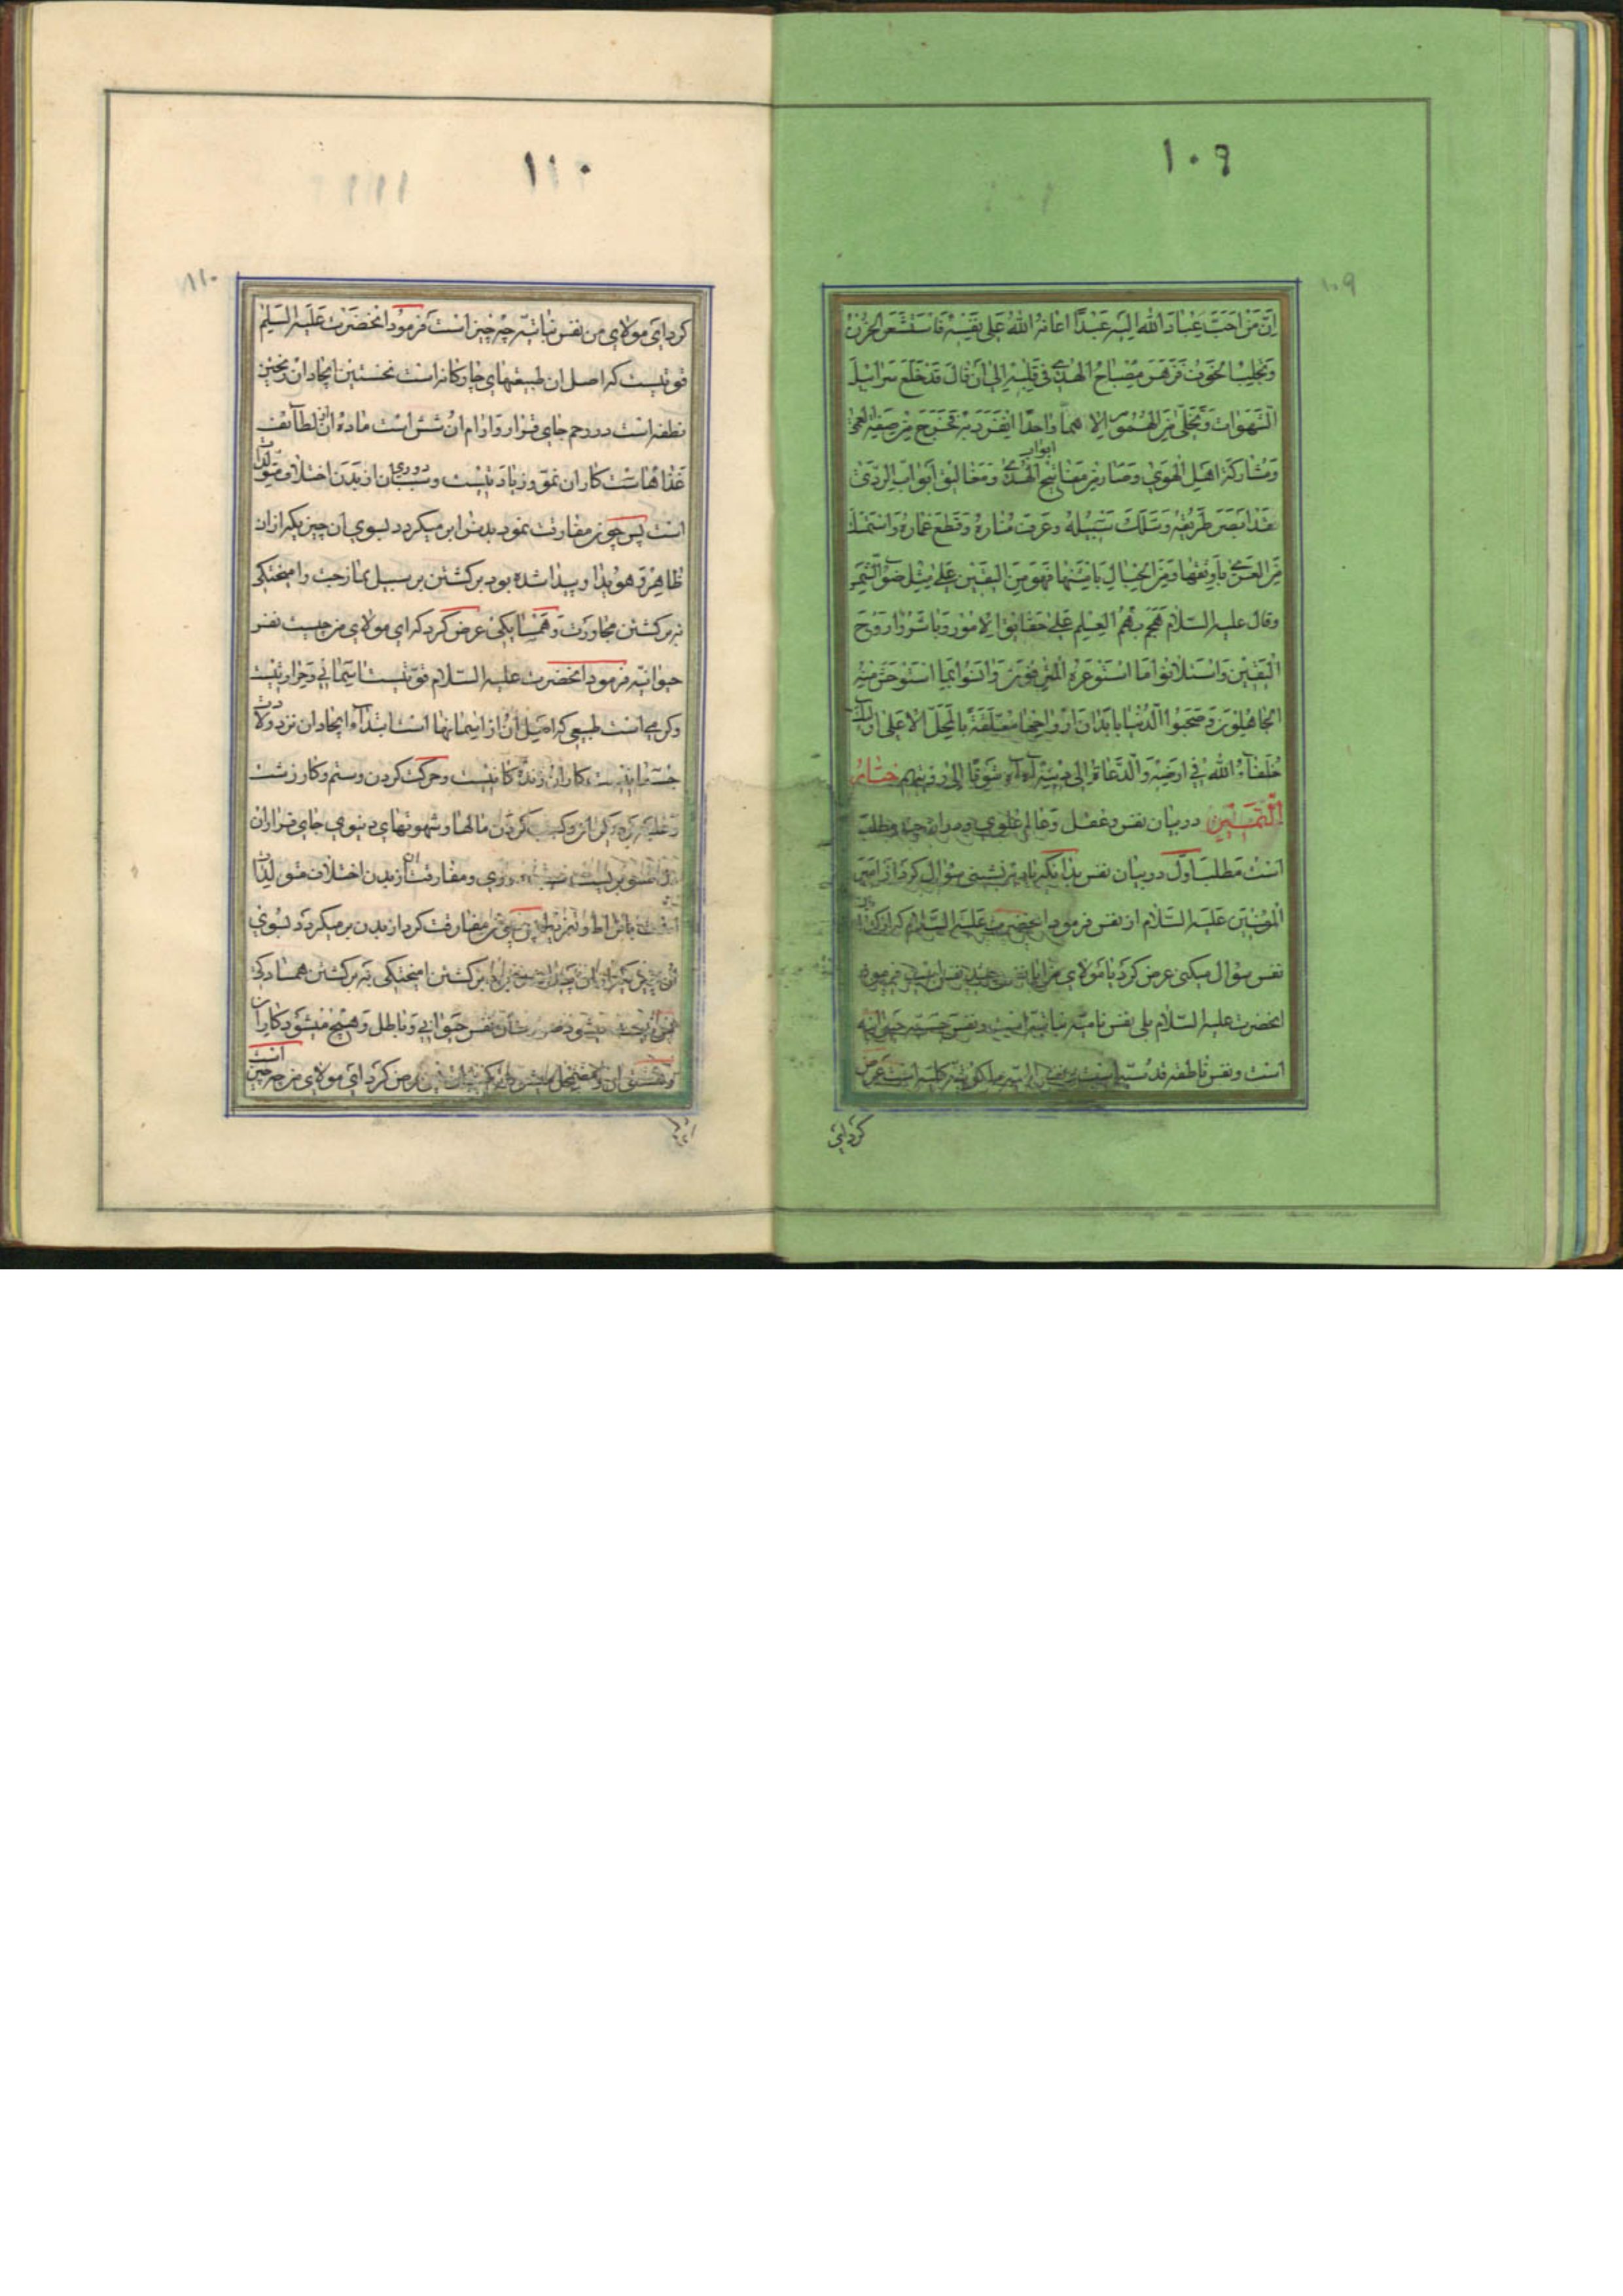 ١٠٩
١٠٩
اِنَّ مِنْ اَحَبِّ عِبَادِ اللّٰهِ اِلَیْهِ عَبْدًا اَعَانَهُ اللّٰهُ عَلٰی نَفْسِهِ فَاسْتَشْعَرَ الْحُزْنَ
وَتَجَلْبَبَ الْخَوْفَ فَزَهَرَ مِصْبَاحُ الْهُدٰی فِی قَلْبِهِ اِلٰی اَنْ قَالَ قَدْ خَلَعَ سَرَابِیلَ
الشَّهَوَاتِ وَتَخَلّٰی مِنَ الْهُمُومِ اِلَّا هَمًّا وَاحِدًا اِنْفَرَدَ بِهِ فَخَرَجَ مِنْ صِفَةِ الْعَمٰی
وَمُشَارَکَةِ اَهْلِ الْهَوٰی وَصَارَ مِنْ مَفَاتِیحِ ابواب الْهُدٰی وَمَغَالِیقِ اَبْوَابِ الرَّدٰی
قَدْ اَبْصَرَ طَرِیقَهُ وَسَلَكَ سَبِیلَهُ وَعَرَفَ مَنَارَهُ وَقَطَعَ غِمَارَهُ وَاسْتَمْسَكَ
مِنَ الْعُرٰی بِاَوْثَقِهَا وَمِنَ الْحِبَالِ بِاَمْتَنِهَا فَهُوَ مِنَ الْیَقِینِ عَلٰی مِثْلِ ضَوْءِ الشَّمْسِ
وقال علیه السّلام هَجَمَ بِهِمُ الْعِلْمُ عَلٰی حَقَائِقِ الْاُمُورِ وَبَاشَرُوا رَوْحَ
الْیَقِینِ وَاسْتَلَانُوا مَا اسْتَوْعَرَهُ الْمُتْرَفُونَ وَاَنِسُوا بِمَا اسْتَوْحَشَ مِنْهُ
الْجَاهِلُونَ وَصَحِبُوا الدُّنْیَا بِاَبْدَانٍ اَرْوَاحُهَا مُعَلَّقَةٌ بِالْمَحَلِّ الْاَعْلٰی اُولٰئِكَ
خُلَفَاءُ اللّٰهِ فِی اَرْضِهِ وَالدُّعَاةُ اِلٰی دِینِهِ آه آه شَوْقًا اِلٰی رُؤْیَتِهِم
در بیان نفس و عقل و عالم علوی و در ان چند مطلب
است مطلب اوّل در بیان نفس بدانکه سؤال کرد از امیر
المؤمنین علیه السّلام از نفس فرمود انحضرت علیه السّلام که از کدام
نفس سؤال میکنی عرض کرد یا مولای من ایا نفس چند نفس است فرمود
انحضرت علیه السّلام بلی نفس نامیّه نباتیّه است و نفس حسّیّه حیوانیّه
است و نفس ناطقه قدسیّه است و نفس الهیّه ملکوتیّه کلیّه است عرض
کرد ای
١١٠
١١٠
کرد ای مولای من نفس نباتیّه چه چیز است فرمود انحضرت علیه السّلم
قوّتیست که اصل ان طبیعتهای چهارکانه است نخستین ایجاد ان ریختن
نطفه است در رحم جای قرار و ارام ان شش است مادهٔ ان از لطائف
غذاهاست کار ان نموّ و زیادتیست و سبب دوری ان از بدن اختلاف متولدات
است پس چون مفارقت نمود بدن را بر میکردد بسوی ان چیزیکه از ان
ظاهر و هویدا و پیدا شده بود برکشتن بر سبیل ممازجت و امیختکی
نه برکشتن مجاورت و همسایکی عرض کرد که ای مولای من چیست نفس
حیوانیّه فرمود انحضرت علیه السّلام قوّتیست اسمانی و حرارتیست
و کرمی است طبیعی که اصل ان از اسمانها است ابتداء ایجاد ان نزد ولادت
جسمانیست کار ان زندکانیست و حرکت کردن و ستم و کار زشت
و غلبه کردن و کسب کردن مالها و شهوتهای دنیوی جای قرار ان
دل است دوری و مفارقت ان از بدن اختلاف متولدات
است پس چون مفارقت کرد از بدن بر میکردد بسوی
برکشتن امیختکی نه برکشتن همسایکی
نفس حیوانی و باطل و هیچ میشود کار ان
عرض کرد ای مولای من چه چیز است